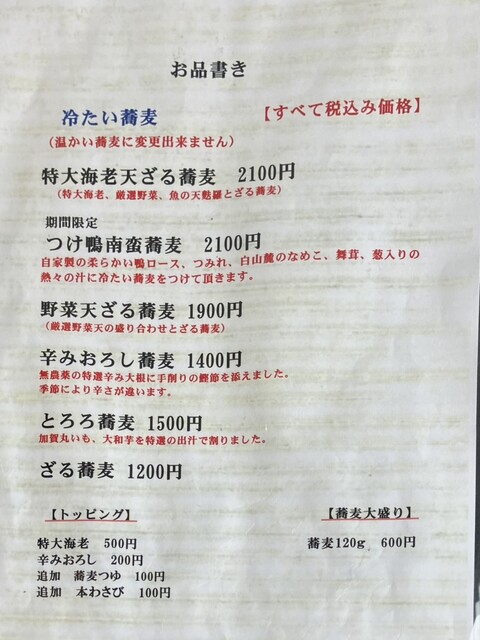 お品書き
冷たい蕎麦
【すべて税込み価格】
(温かい蕎麦に変更出来ません)
特大海老天ざる蕎麦 2100円
(特大海老、厳選野菜、魚の天麩羅とざる蕎麦)
期間限定
つけ鴨南蛮蕎麦 2100円
自家製の柔らかい鴨ロース、つみれ、白山麓のなめこ、舞茸、葱入りの
熱々の汁に冷たい蕎麦をつけて頂きます。
野菜天ざる蕎麦 1900円
(厳選野菜天の盛り合わせとざる蕎麦)
辛みおろし蕎麦 1400円
無農薬の特選辛み大根に手削りの鰹節を添えました。
季節により辛さが違います。
とろろ蕎麦 1500円
加賀丸いも、大和芋を特選の出汁で割りました。
ざる蕎麦 1200円
【トッピング】
特大海老 500円
辛みおろし 200円
追加 蕎麦つゆ 100円
追加 本わさび 100円
【蕎麦大盛り】
蕎麦120g 600円